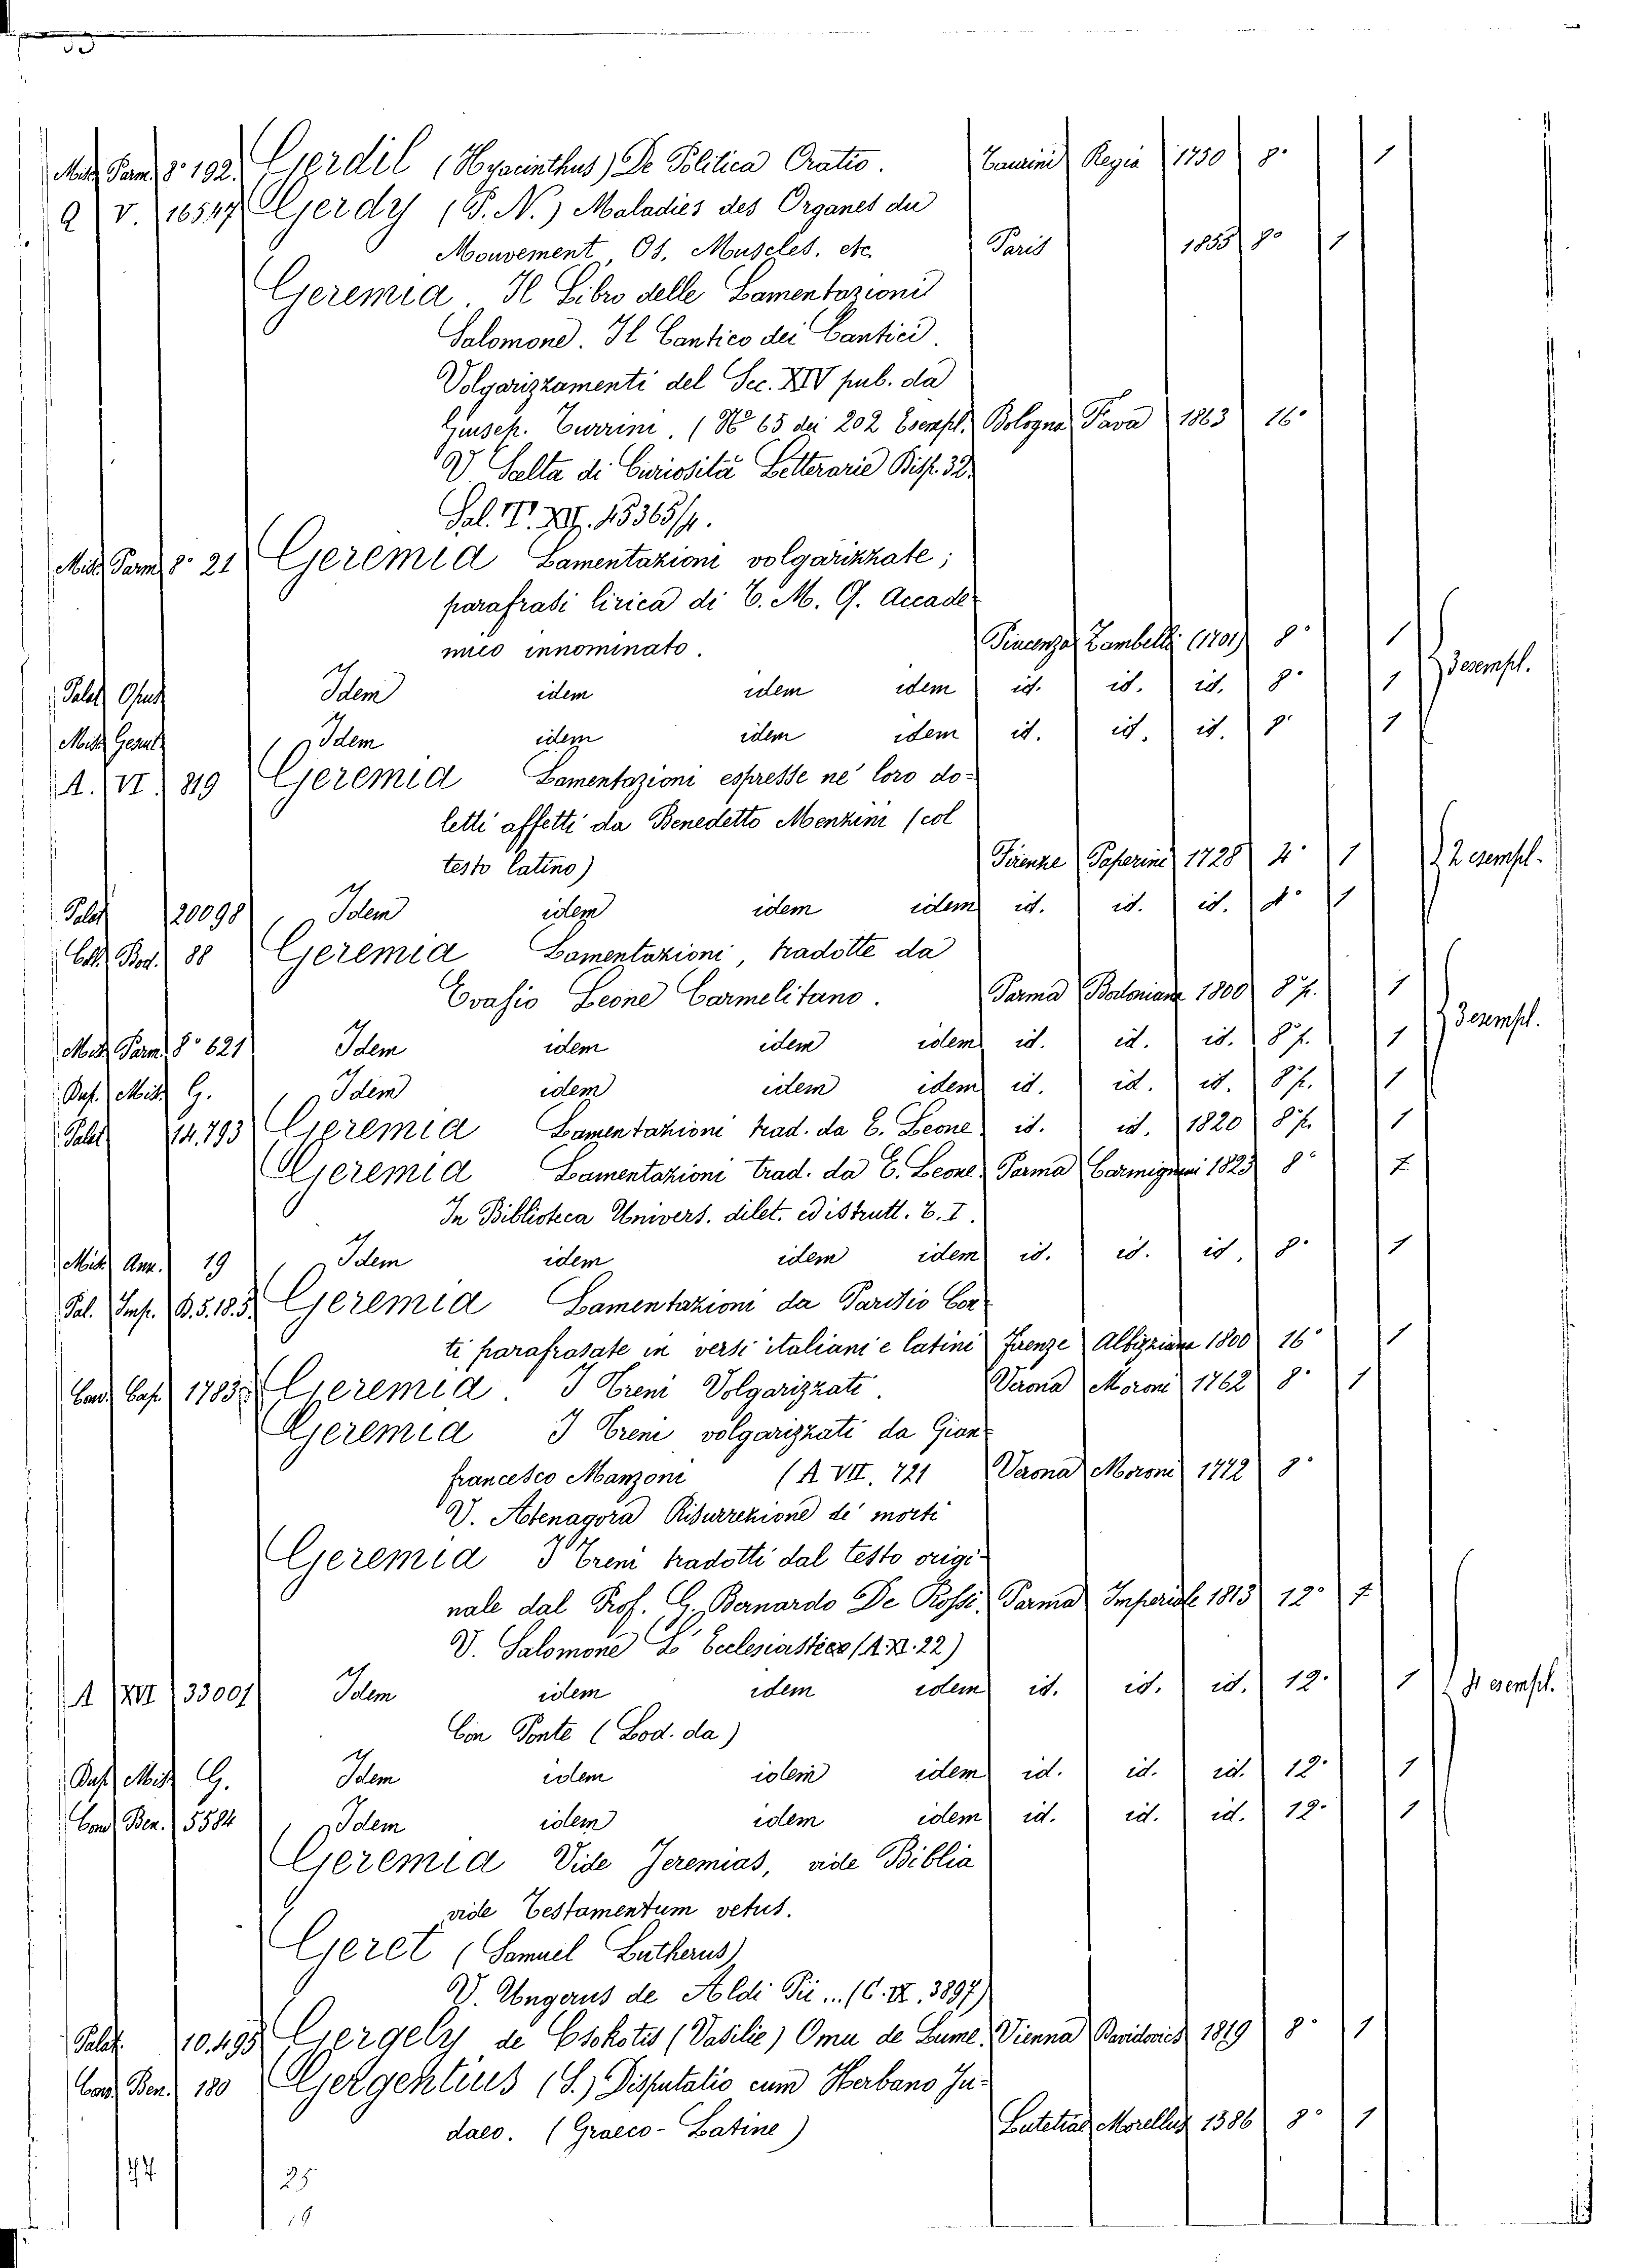 Misc. Parm. 8° 192. Gerdil (Hyacinthus) De Politica Oratio. Taurini Regia 1750 8° 1
Q V. 16547 Gerdy (P. N.) Maladies des Organes du
Mouvement, Os, Muscles, etc. Paris 1855 8° 1
Geremia. Il Libro delle Lamentazioni
Salomone. Il Cantico dei Cantici.
Volgarizzamenti del Sec. XIV pub. da
Giusep. Turrini. (N° 65 dei 202 Esempl. Bologna Fava 1863 16°
V. Scelta di Curiosità Letterarie Disp. 32.
Sal. V. XII. 15365/4.
Misc. Parm. 8° 21 Geremia Lamentazioni volgarizzate;
parafrasi lirica di C. M. G. Accade-
mico innominato. Piacenza Zambelli (1701) 8° 1
Palat Opus Idem idem idem idem id. id. id. 8° 1 3 esempl.
Misc Gesuit Idem idem idem idem id. id. id. 8° 1
A. VI. 819 Geremia Lamentazioni espresse ne' loro do-
letti affetti da Benedetto Menzini (col
testo latino) Firenze Paperini 1728 4° 1 2 esempl.
Palat 20098 Idem idem idem idem id. id. id. 4° 1
Coll. Bod. 88 Geremia Lamentazioni, tradotte da
Evasio Leone Carmelitano. Parma Bodoniane 1800 8° p. 1
Misc. Parm. 8° 621 Idem idem idem idem id. id. id. 8° p. 1 3 esempl.
Dup. Misc G. Idem idem idem idem id. id. id. 8° p. 1
Palat 14.793 Geremia Lamentazioni trad. da E. Leone id. id. 1820 8° p. 1
Geremia Lamentazioni trad. da E. Leone. Parma Carmignani 1823 8° 7
In Biblioteca Univers. dilet. ed istrutt. T. I.
Misc Ann. 19 Idem idem idem idem id. id. id. 8° 1
Pal. Imp. B.5.18.5. Geremia Lamentazioni da Parisio Cor-
ti parafrasate in versi italiani e latini Firenze Albizziana 1800 16° 1
Cond. Cap. 1783 Geremia. I Treni Volgarizzati. Verona Moroni 1762 8° 1
Geremia I Treni volgarizzati da Gian-
francesco Manzoni (A VII. 721 Verona Moroni 1772 8°
V. Atenagora Risurrezione de' morti
Geremia I Treni tradotti dal testo origi-
nale dal Prof. G. Bernardo De Rossi. Parma Imperiale 1813 12° 7
V. Salomone L' Ecclesiastico (A. XI. 22)
A XVI 33001 Idem idem idem idem id. id. id. 12° 1 4 esempl.
Con Ponte (Lod. da)
Dup. Misc G. Idem idem idem idem id. id. id. 12° 1
Cond Ben. 5584 Idem idem idem idem id. id. id. 12° 1
Geremia Vide Jeremias, vide Biblia
vide Testamentum vetus.
Geret (Samuel Lutherus)
V. Ungerus de Aldi Pii ... (C. IX. 3897)
Palat. 10.495 Gergely de Csokotis (Vasilie) Omu de Lume. Vienna Davidovici 1819 8° 1
Cond. Ben. 180 Gergentius (S.) Disputatio cum Herbano Ju-
daeo. (Graeco-Latine) Lutetiae Morellus 1586 8° 1
25
19